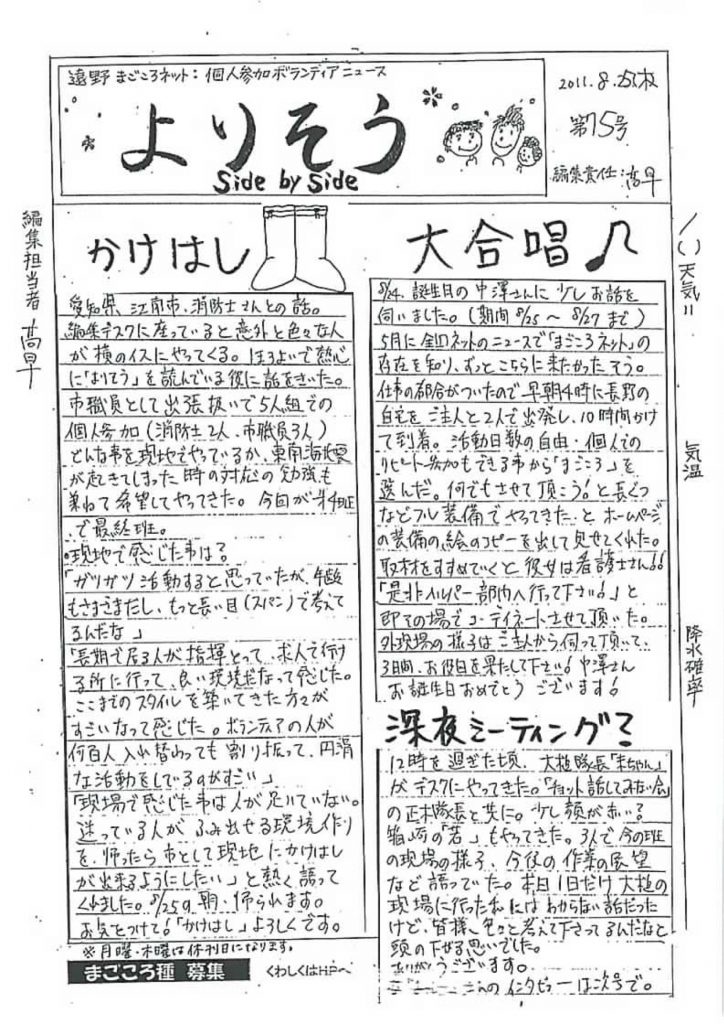 遠野 まごころネット：個人参加ボランティアニュース
よりそう
Side by Side
2011.8.25(木)
第75号
編集責任：高早
編集担当者 高早
天気＝
気温
降水確率
かけはし
愛知県、江南市、消防士さんとの話。
編集デスクに座っていると意外と色々な人
が横のイスにやってくる。ほろよいで熱心
に「よりそう」を読んでいる彼に話をきいた。
市職員として出張扱いで5人組での
個人参加（消防士2人、市職員3人）
どんな事を現地でやっているか、東南海地震
が起きてしまった時の対応の勉強も
兼ねて希望してやってきた。今回が第4班
で最終班。
現地で感じた事は？
「ガツガツ活動すると思っていたが、年齢
もさまざまだし、もっと長い目（スパン）で考えて
るんだな」
「長期で居る人が指揮とって、求人で行け
る所に行って、良い環境だなって感じた。
ここまでのスタイルを築いてきた方々が
すごいなって感じた。ボランティアの人が
何百人入れ替わっても割り振って、円滑
な活動をしているのがすごい」
「現場で感じた事は人が足りていない。
迷っている人がふみ出せる環境作り
を、帰ったら市として現地にかけはし
が出来るようにしたい」と熱く語って
くれました。8/25の朝、帰られます。
お気をつけて！「かけはし」よろしくです。
※月曜・木曜は休刊日になります。
まごころ種 募集
くわしくはHPへ
大合唱♪
8/24、誕生日の中澤さんに少しお話を
伺いました。（期間8/25～8/27まで）
5月に全国ネットのニュースで「まごころネット」の
存在を知り、ずっとこちらに来たかったそう。
仕事の都合がついたので早朝4時に長野の
自宅をご主人と2人で出発し、10時間かけ
て到着。活動日数の自由・個人での
リピート参加もできる事から「まごころ」を
選んだ。何でもさせて頂こう！と長ぐつ
などフル装備でやってきた、とホームページ
の装備の絵のコピーを出して見せてくれた。
取材をすすめていくと彼女は看護士さん!!
「是非ヘルパー部内へ行って下さい！」と
即その場でコーディネートさせて頂いた。
外現場の様子はご主人から伺って頂いて、
3日間、お役目を果たして下さい！中澤さん
お誕生日おめでとうございます！
深夜ミーティング？
12時を過ぎた頃、大槌隊長「まちゃん」
がデスクにやってきた。「チョット話してみない会」
の正木隊長と共に。少し顔が赤い？
箱崎の「若」もやってきた。3人で今の班
の現場の様子、今後の作業の展望
など語っていた。本日1日だけ大槌の
現場に行った私にはわからない話だった
けど、皆様、色々と考えて下さってるんだなと
頭の下がる思いでした。
ありがとうございます。
さんのインタビューは次号で。